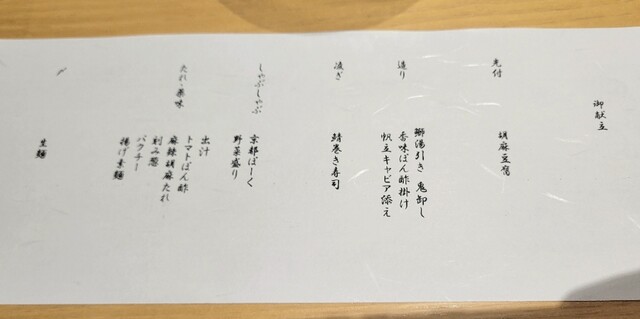 御献立
先付
胡麻豆腐
造り
鰤湯引き 鬼卸し
香味ぽん酢掛け
帆立キャビア添え
凌ぎ
鯖巻き寿司
しゃぶしゃぶ
京都ぽーく
野菜盛り
たれ・薬味
出汁
トマトぽん酢
麻辣胡麻たれ
刻み葱
パクチー
揚げ素麺
〆
生麺